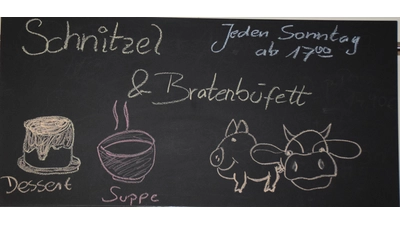 Schnitzel
Jeden Sonntag
ab 17⁰⁰
& Bratenbüfett
Dessert
Suppe